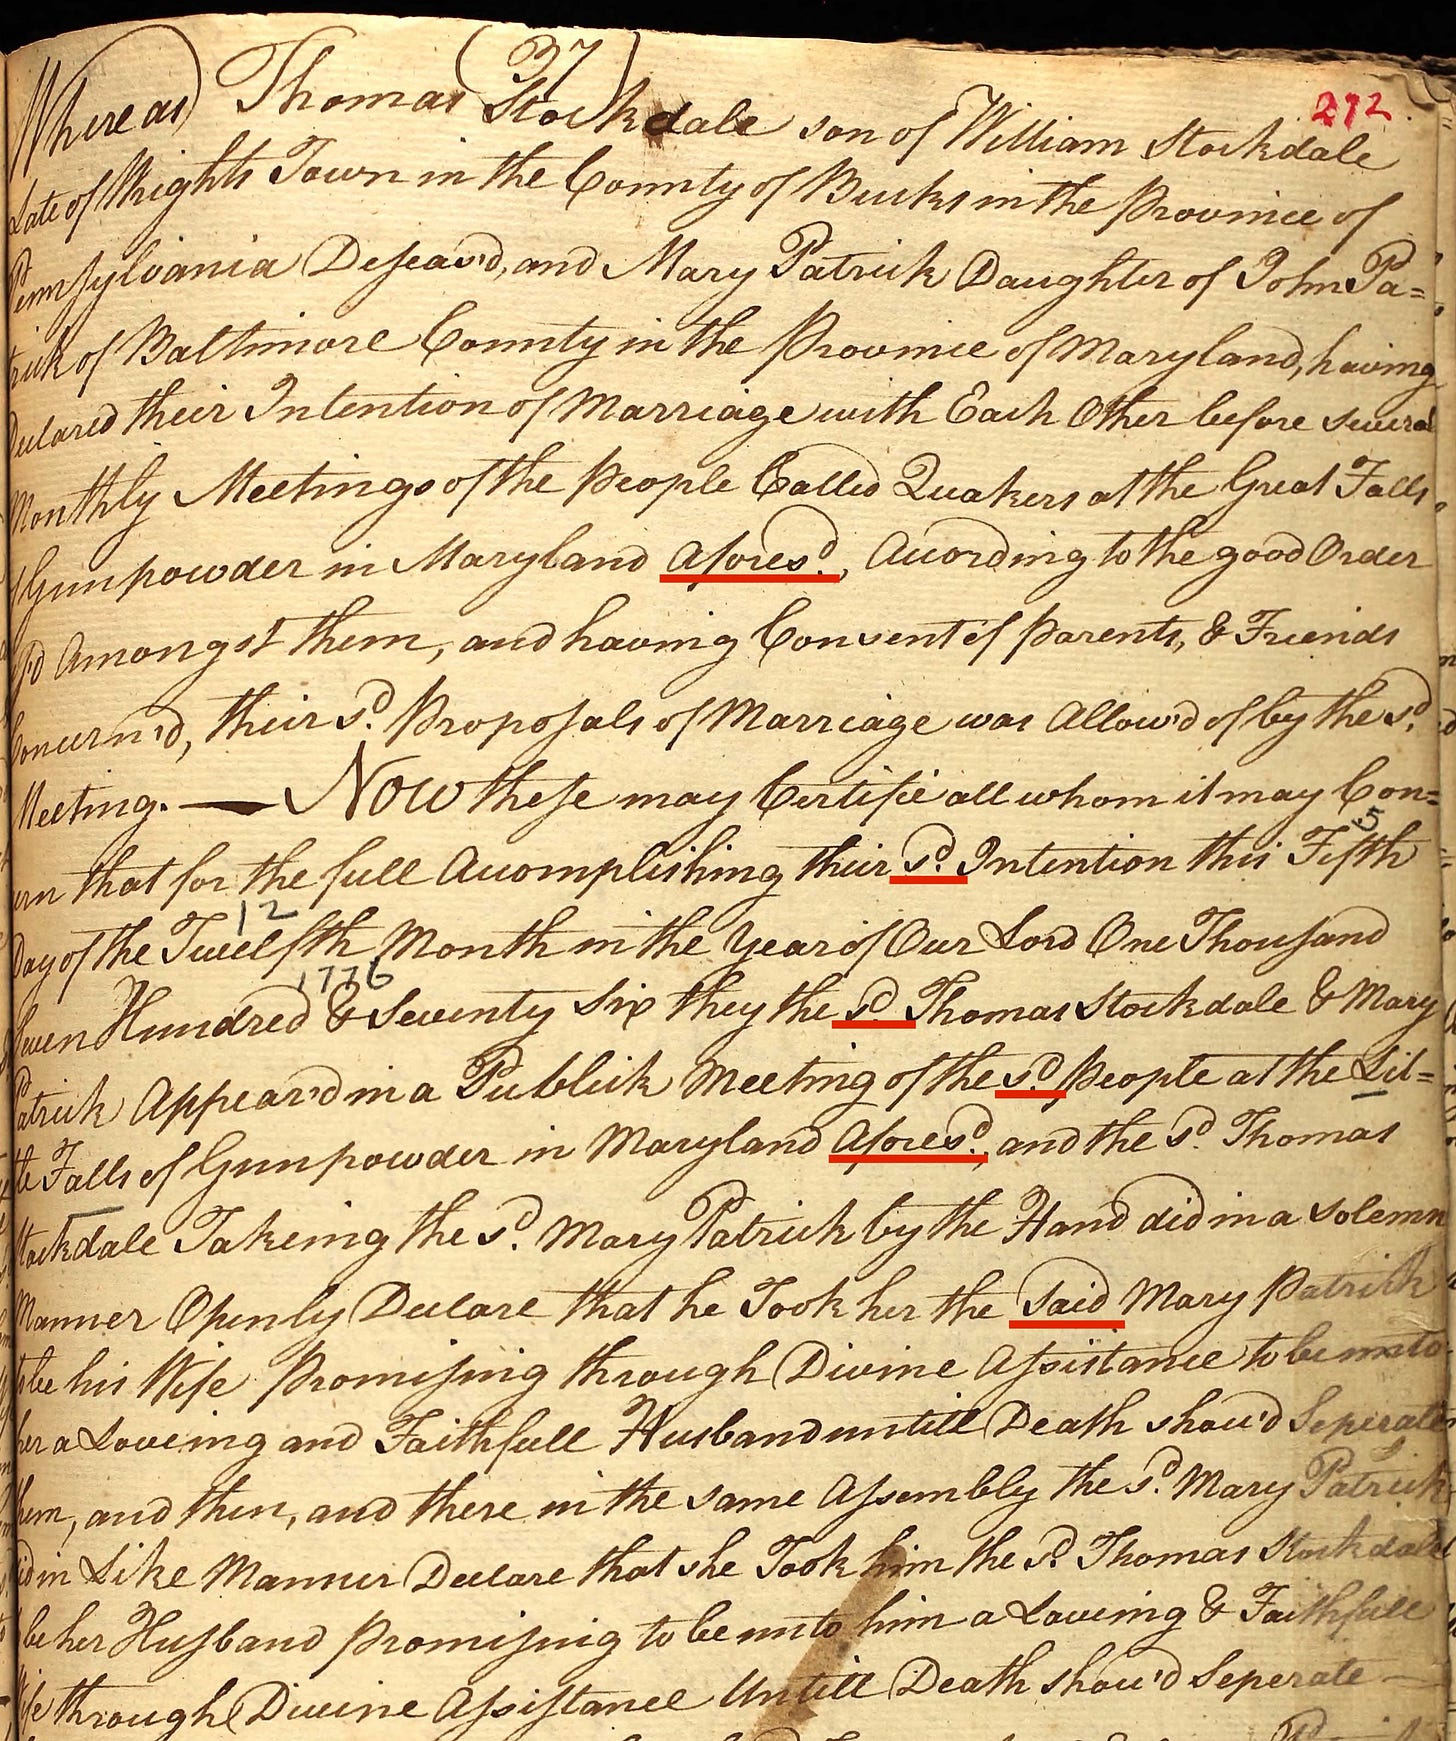 (37)
272
Whereas Thomas Stockdale son of William Stockdale
Late of Wrights Town in the County of Bucks in the Province of
Pennsylvania Deseas'd, and Mary Patrick Daughter of John Pa=
trick of Baltimore County in the Province of Maryland, having
Declared their Intention of Marriage with Each Other before several
Monthly Meetings of the People Called Quakers at the Great Falls
of Gunpowder in Maryland Afores.d, According to the good Order
Amongst them, and having Consent of Parents, & Friends
Concern'd, their s.d Proposals of Marriage was Allow'd of by the s.d
Meeting. — Now these may Certifie all whom it may Con=
5
cern that for the full Accomplishing their s.d Intention this Fifth
12
Day of the Twelfth Month in the Year of Our Lord One Thousand
1776
Seven Hundred & Seventy Six they the s.d Thomas Stockdale & Mary
Patrick Appear'd in a Publick Meeting of the s.d People at the Lit=
tle Falls of Gunpowder in Maryland Afores.d, and the s.d Thomas
Stockdale Takeing the s.d Mary Patrick by the Hand did in a solemn
Manner Openly Declare that he Took her the Said Mary Patrick
to be his Wife Promising through Divine Assistance to be unto
her a Loveing and Faithfull Husband untill Death shou'd Seperate
them, and then, and there in the same Assembly the s.d Mary Patrick
did in Like Manner Declare that she Took him the s.d Thomas Stockdale
be her Husband Promising to be unto him a Loveing & Faithfull
Wife through Divine Assistance Untill Death shou'd Seperate —